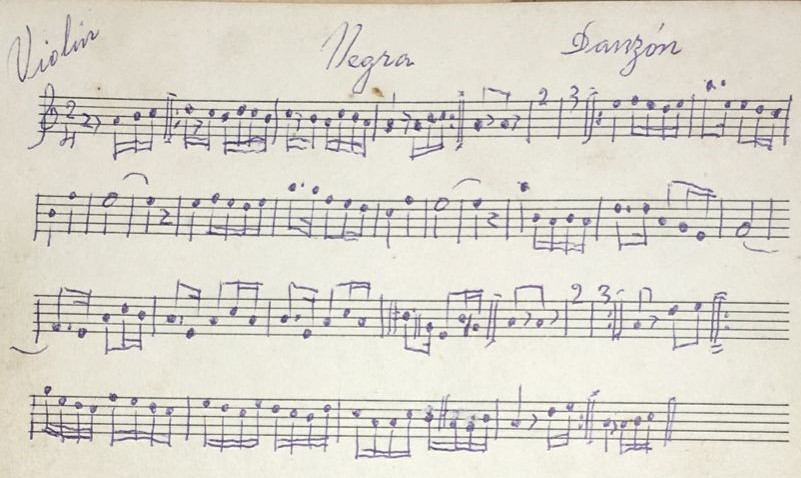 Violin Negra Danzón
2 4 2 3
2 3